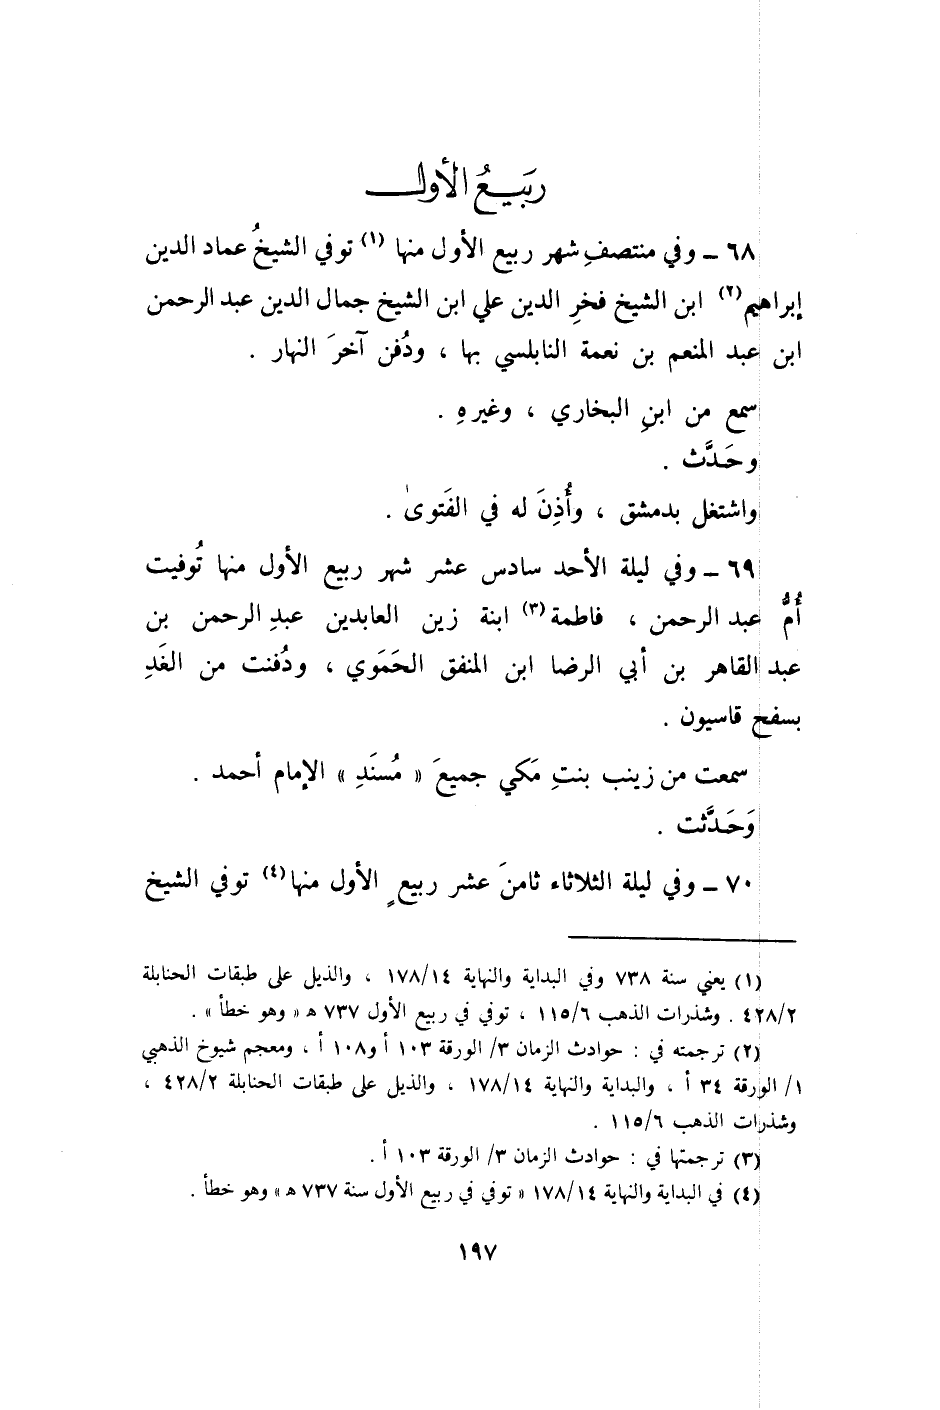 ربيعُ الأول
٦٨ ـ وفي منتصفِ شهر ربيع الأول منها (١) توفي الشيخُ عماد الدين
إبراهيم(٢) ابن الشيخ فخرِ الدين علي ابن الشيخ جمال الدين عبد الرحمن
ابن عبد المنعم بن نعمة النابلسي بها ، ودُفن آخرَ النهار .
سمع من ابنِ البخاري ، وغيرهِ .
وحَدَّث .
واشتغل بدمشق ، وأُذِنَ له في الفَتوىٰ .
٦٩ ـ وفي ليلة الأحد سادس عشر شهر ربيع الأول منها تُوفيت
أُمُّ عبد الرحمن ، فاطمة(٣) ابنة زين العابدين عبدِ الرحمن بن
عبد القاهر بن أبي الرضا ابن المنفق الحَمَوي ، ودُفنت من الغَدِ
بسفح قاسيون .
سمعت من زينب بنتِ مَكي جميعَ « مُسنَدِ » الإمام أحمد .
وَحَدَّثت .
٧٠ ـ وفي ليلة الثلاثاء ثامنَ عشر ربيعٍ الأول منها(٤) توفي الشيخ
(١) يعني سنة ٧٣٨ وفي البداية والنهاية ١٧٨/١٤ ، والذيل على طبقات الحنابلة
٤٢٨/٢ . وشذرات الذهب ١١٥/٦ ، توفي في ربيع الأول ٧٣٧ هـ « وهو خطأ » .
(٢) ترجمته في : حوادث الزمان ٣/ الورقة ١٠٣ أ و١٠٨ أ ، ومعجم شيوخ الذهبي
١/ الورقة ٣٤ أ ، والبداية والنهاية ١٧٨/١٤ ، والذيل على طبقات الحنابلة ٤٢٨/٢ ،
وشذرات الذهب ١١٥/٦ .
(٣) ترجمتها في : حوادث الزمان ٣/ الورقة ١٠٣ أ .
(٤) في البداية والنهاية ١٧٨/١٤ « توفي في ربيع الأول سنة ٧٣٧ هـ » وهو خطأ .
١٩٧